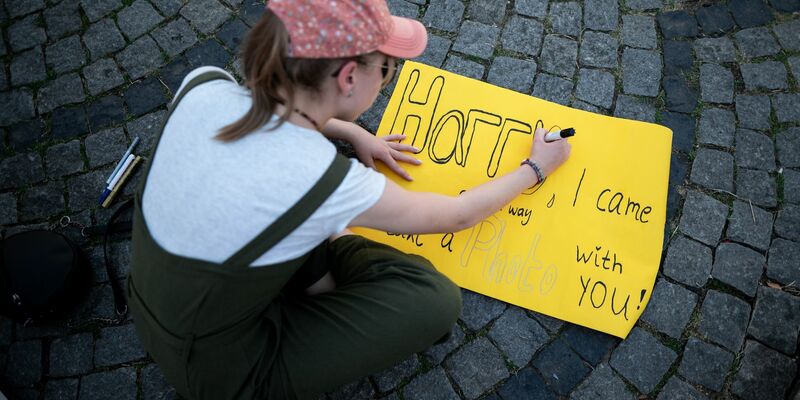 Harry, I came
way
take a Photo with
YOU!